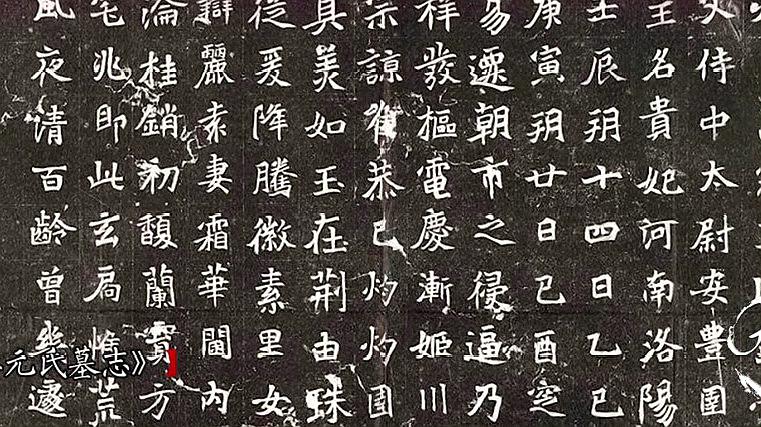 父侍中太尉安豐圉
王名貴妃河南洛陽
壬辰玥十四日乙巳
庚寅玥廿日己酉窆
易遷朝市之侵逼乃
祥發樞電慶漸姬川
宗諒雅恭己灼灼固
真美如玉在荆由珠
從爰降騰徽素里女
辯麗素妻霜華閫内
淪桂銷初馥蘭實方
宅兆即此玄扃惟荒
風夜清百齡曾幾遽
元氏墓志》